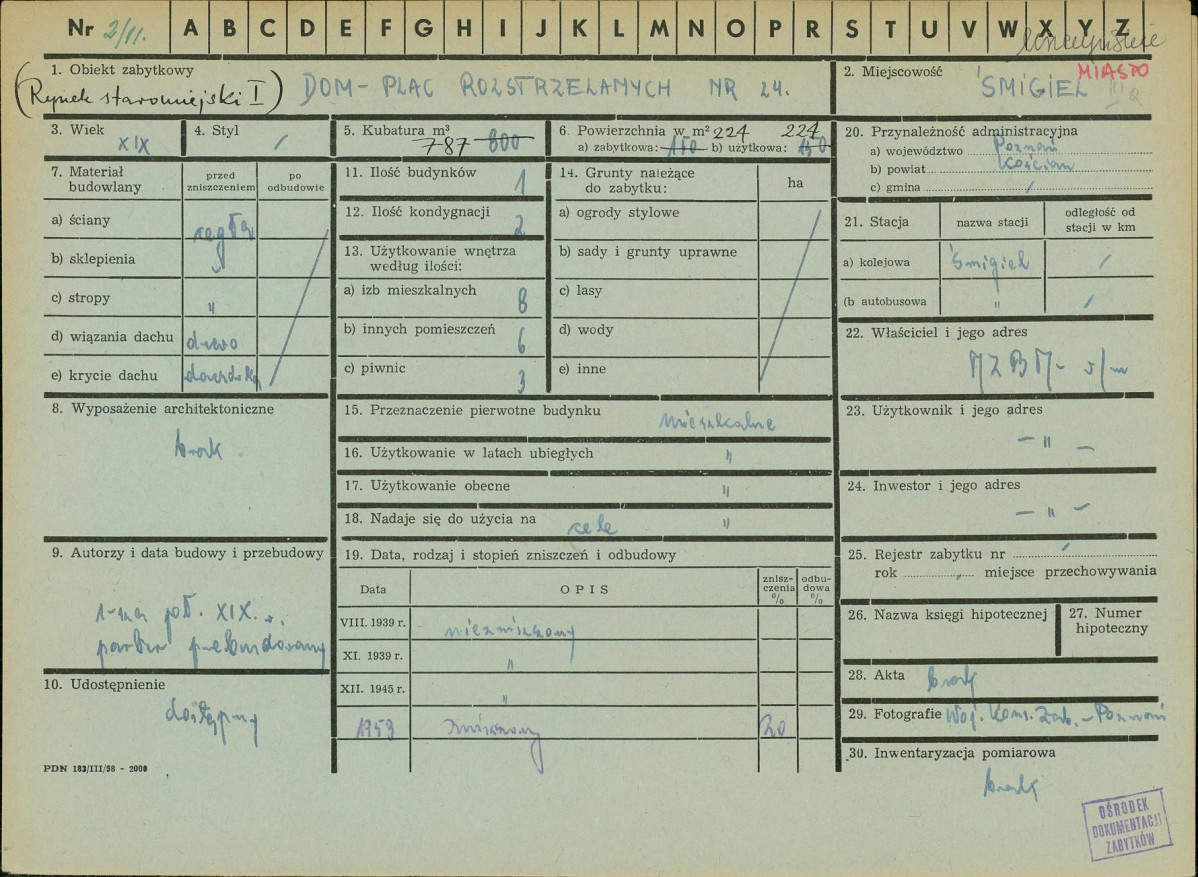 Nr 2/11. A B C D E F G H I J K L M N O P R S T U V W X Y Z
1. Obiekt zabytkowy
(Rynek staromiejski I) DOM - PLAC ROZSTRZELANYCH NR 24.
2. Miejscowość MIASTO
ŚMIGIEL
3. Wiek
XIX
4. Styl
/
5. Kubatura m³
787 800
6. Powierzchnia w m² 224 224
a) zabytkowa: 150 b) użytkowa: 150
7. Materiał budowlany
przed zniszczeniem
po odbudowie
a) ściany cegła
b) sklepienia "
c) stropy "
d) wiązania dachu drewo
e) krycie dachu dachówka
8. Wyposażenie architektoniczne
brak
9. Autorzy i data budowy i przebudowy
1-sza poł. XIX w.
parter przebudowany
10. Udostępnienie
dostępny
PDN 183/III/58 - 2000
11. Ilość budynków 1
12. Ilość kondygnacji 2
13. Użytkowanie wnętrza
według ilości:
a) izb mieszkalnych 8
b) innych pomieszczeń 6
c) piwnic 3
14. Grunty należące
do zabytku:
ha
a) ogrody stylowe
b) sady i grunty uprawne
c) lasy
d) wody
e) inne
15. Przeznaczenie pierwotne budynku mieszkalne
16. Użytkowanie w latach ubiegłych "
17. Użytkowanie obecne "
18. Nadaje się do użycia na cele "
19. Data, rodzaj i stopień zniszczeń i odbudowy
Data
OPIS
znisz-
czenia
%
odbu-
dowa
%
VIII. 1939 r. niezniszczony
XI. 1939 r. "
XII. 1945 r. "
1959 zniszczony 20
20. Przynależność administracyjna
a) województwo Poznań
b) powiat Kościan
c) gmina /
21. Stacja
nazwa stacji
odległość od
stacji w km
a) kolejowa Śmigiel /
(b autobusowa " /
22. Właściciel i jego adres
MZBM - s/m
23. Użytkownik i jego adres
— " —
24. Inwestor i jego adres
— " —
25. Rejestr zabytku nr
rok miejsce przechowywania
26. Nazwa księgi hipotecznej
27. Numer
hipoteczny
28. Akta brak
29. Fotografie Woj. Kons. Zab. - Poznań
30. Inwentaryzacja pomiarowa
brak
OŚRODEK
DOKUMENTACJI
ZABYTKÓW